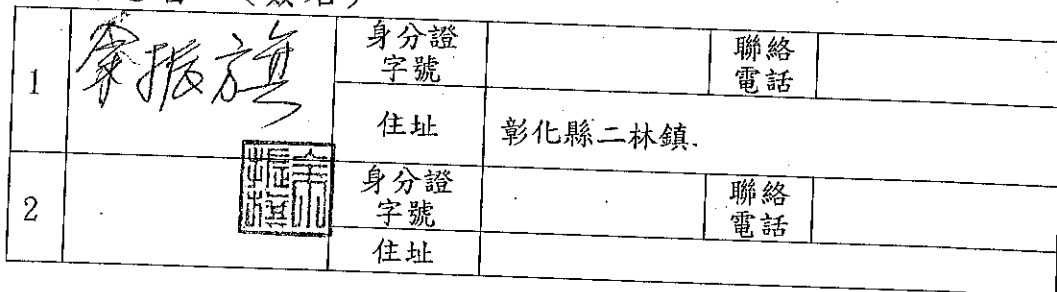 1
振旗
身分證字號
聯絡電話
住址
彰化縣二林鎮.
2
身分證字號
聯絡電話
住址